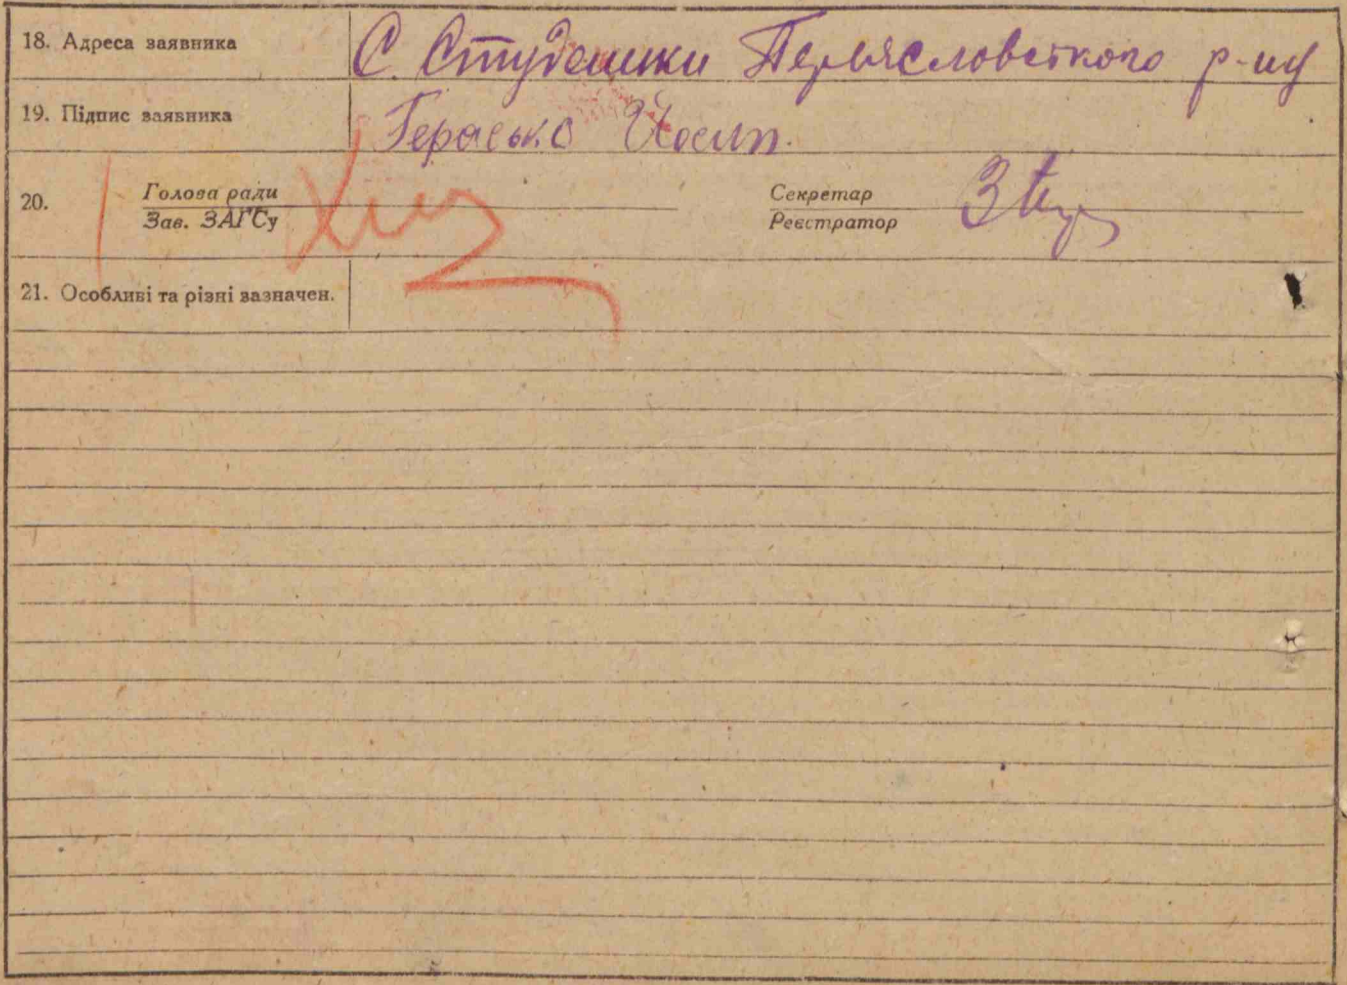 18. Адреса заявника С. Студеники Переясловського р-ну
19. Підпис заявника Герасько Йосип.
20. Голова ради Секретар
Зав. ЗАГСу Реєстратор
21. Особливі та різні зазначен.